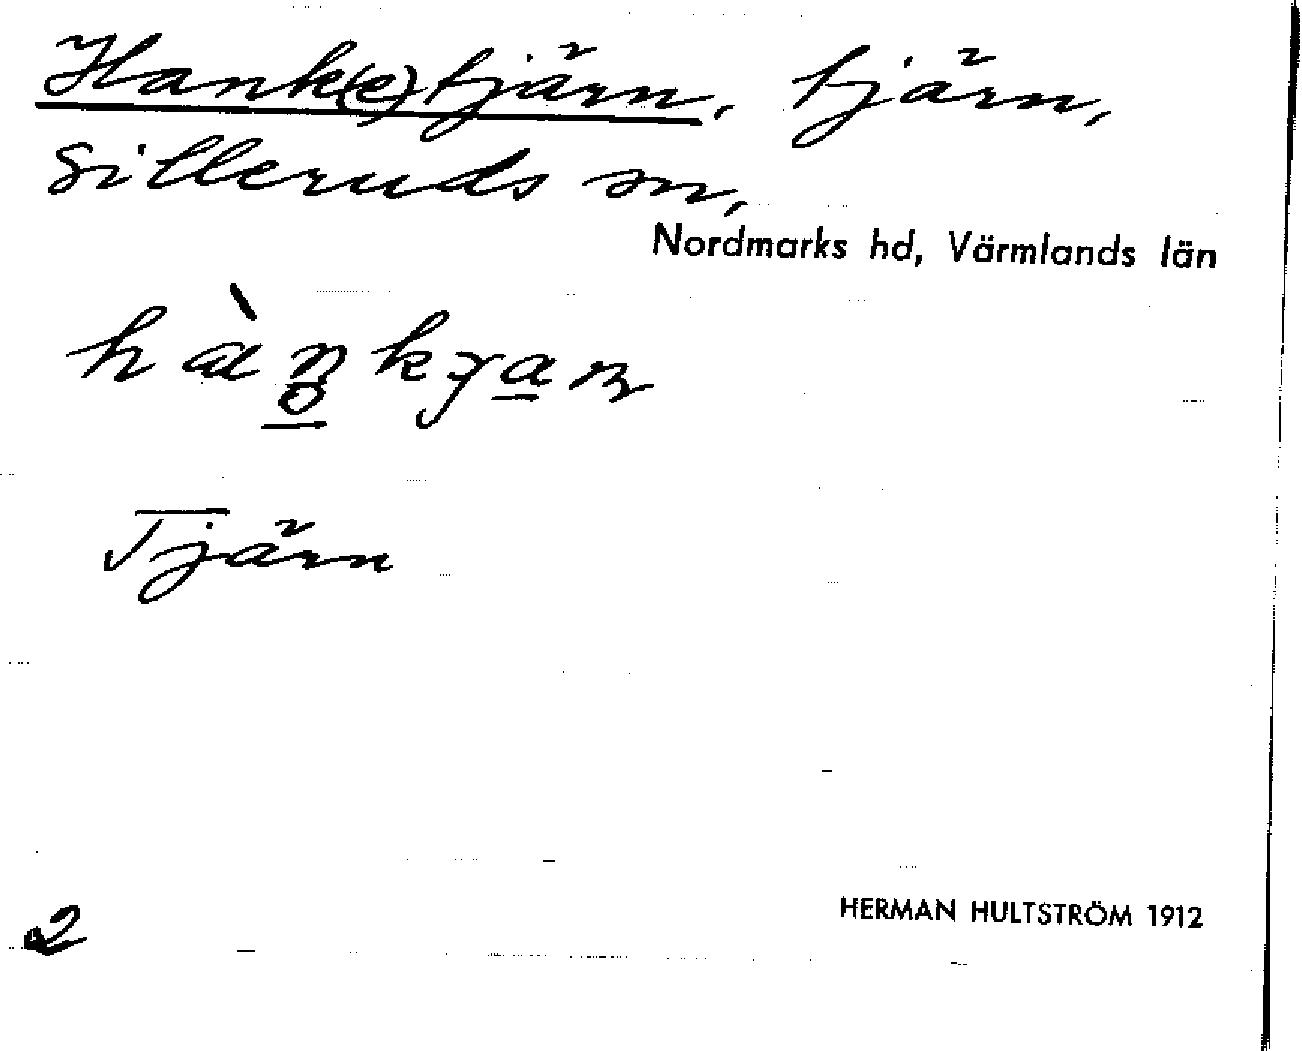 Hank(e)tjärn, tjärn,
Silleruds sn,
Nordmarks hd, Värmlands län
Tjärn
HERMAN HULTSTRÖM 1912
2